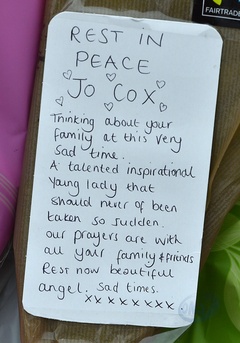 FAIRTRADE
REST IN
PEACE
JO COX
Thinking about your
family at this very
sad time.
A talented inspirational
young lady that
should never of been
taken so sudden.
our prayers are with
all your family & friends
Rest now beautiful
angel. Sad times.
xx xxxxxxx